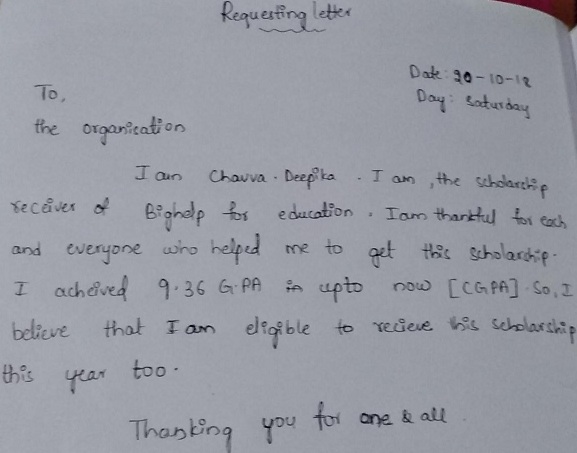 Requesting letter
Date: 20-10-18
To,
Day: Saturday
the organisation
I am Chavva. Deepika. I am, the scholarship
receiver of Bighelp for education. I am thankful for each
and everyone who helped me to get this scholarship.
I acheived 9.36 G.PA in upto now [CGPA]. So, I
believe that I am eligible to recieve this scholarship
this year too.
Thanking you for one & all.